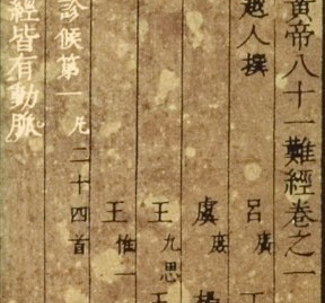 黃帝八十一難經卷之一
越人撰
呂廣
虞庶 楊
王九思 王
王惟一
診候第一 凡二十四首
經皆有動脉